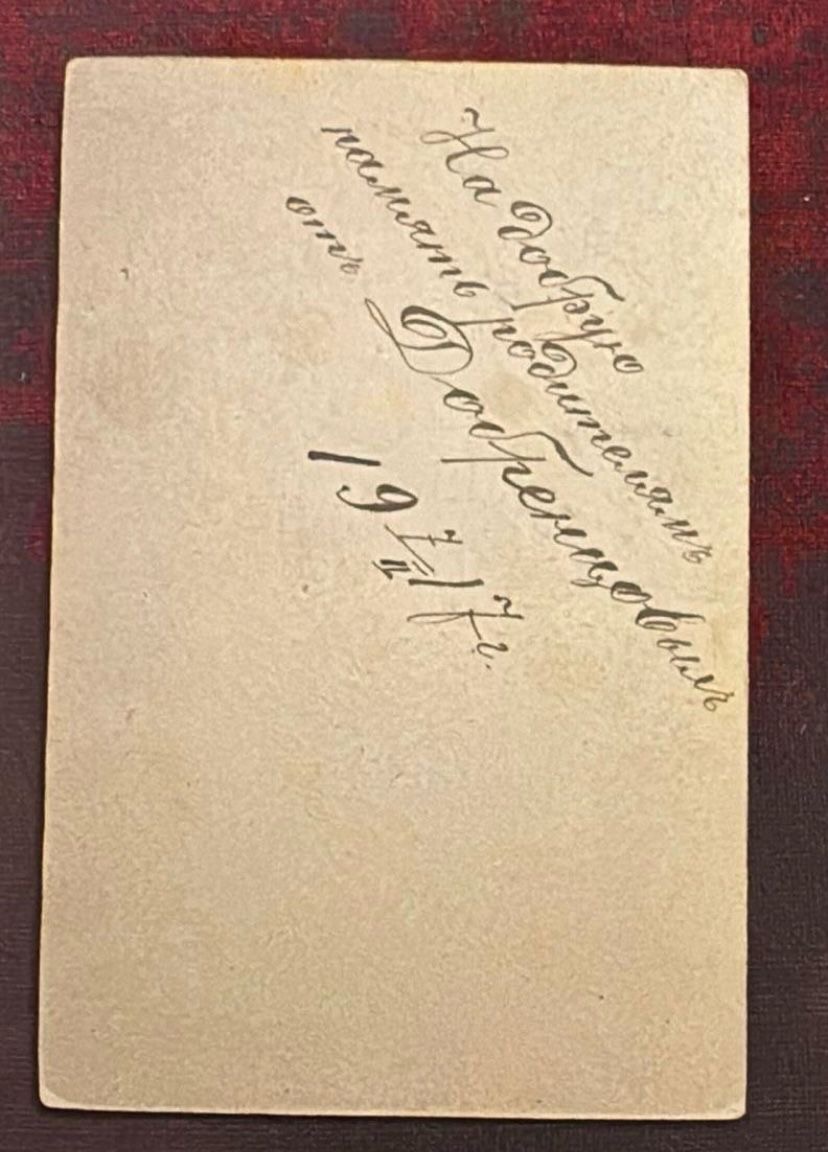 На добрую
память родителямъ
отъ Добренцовыхъ
19 7/II 17 г.